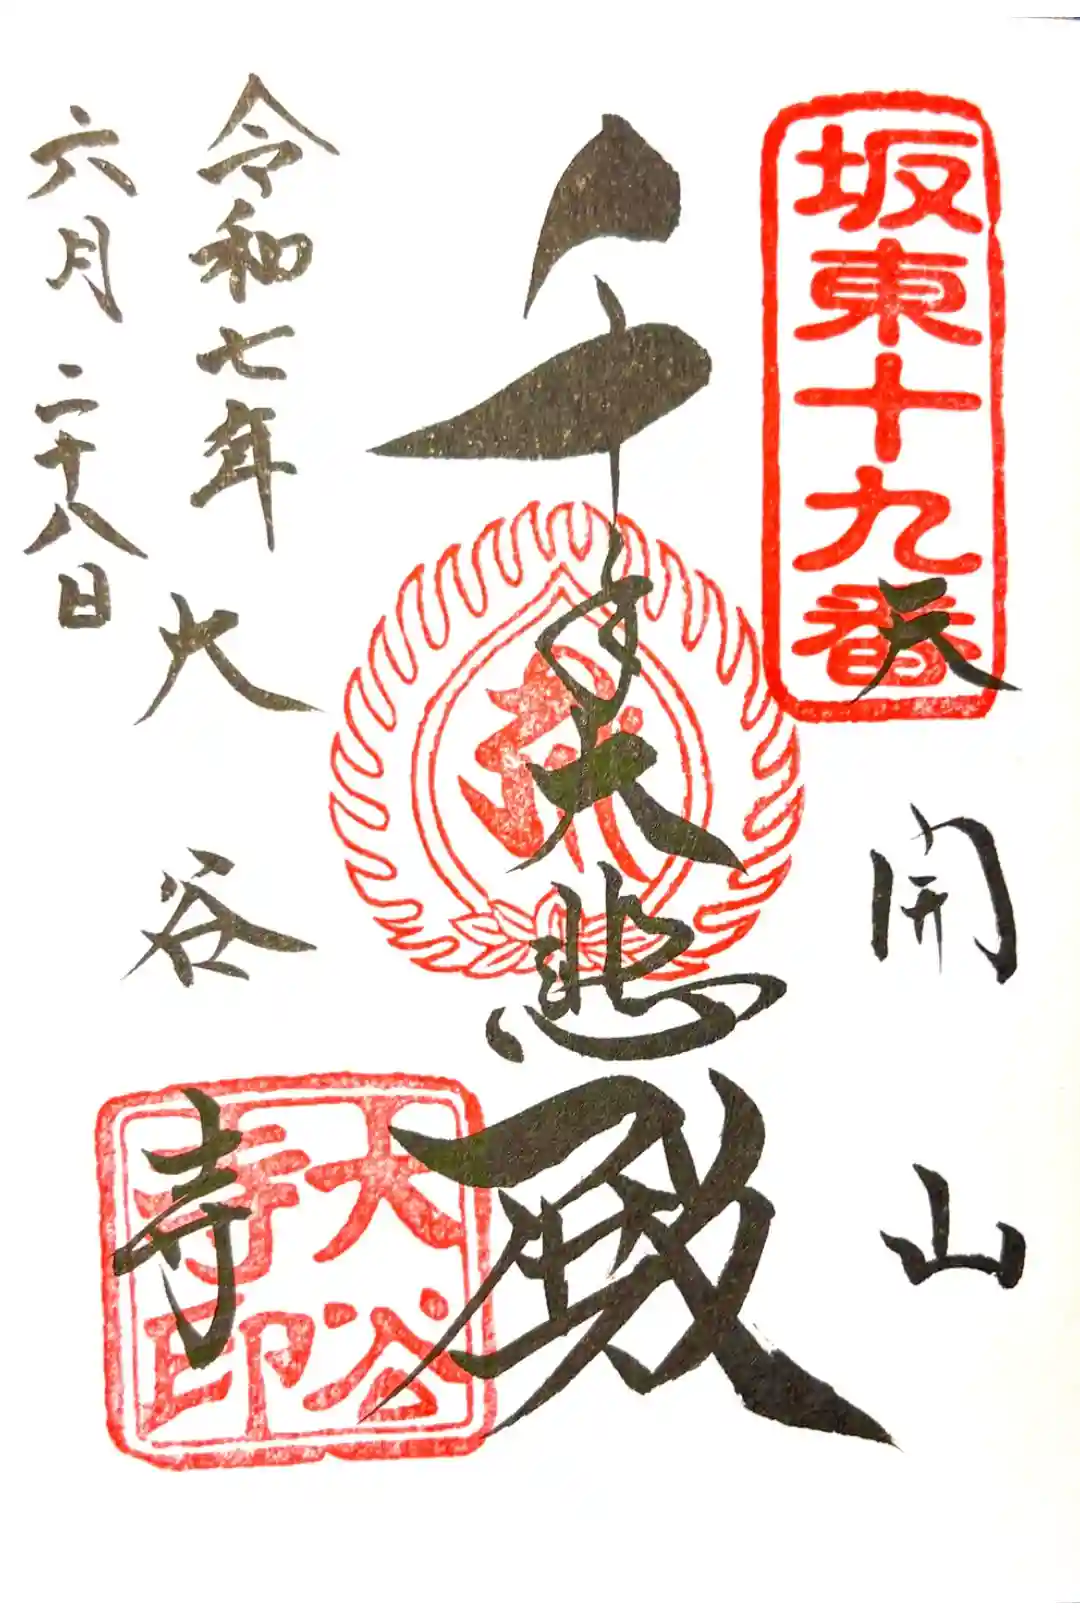 坂東十九番
天開山
千手大悲殿
令和七年
六月二十八日
大谷寺
大谷
寺印